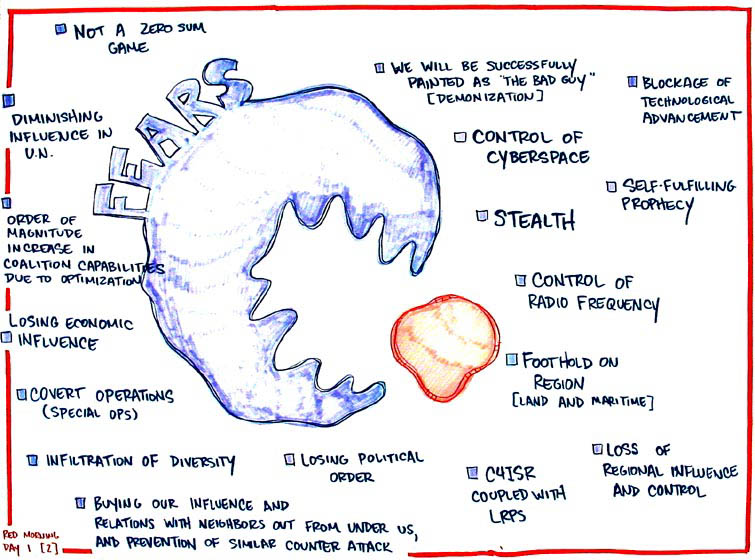 NOT A ZERO SUM
GAME
FEARS
WE WILL BE SUCCESSFULLY
PAINTED AS "THE BAD GUY"
[DEMONIZATION]
BLOCKAGE OF
TECHNOLOGICAL
ADVANCEMENT
DIMINISHING
INFLUENCE IN
U.N.
CONTROL OF
CYBERSPACE
SELF-FULFILLING
PROPHECY
ORDER OF
MAGNITUDE
INCREASE IN
COALITION CAPABILITIES
DUE TO OPTIMIZATION
STEALTH
CONTROL OF
RADIO FREQUENCY
LOSING ECONOMIC
INFLUENCE
FOOTHOLD ON
REGION
[LAND AND MARITIME]
COVERT OPERATIONS
(SPECIAL OPS)
INFILTRATION OF DIVERSITY
LOSING POLITICAL
ORDER
C4ISR
COUPLED WITH
LRPS
LOSS OF
REGIONAL INFLUENCE
AND CONTROL
BUYING OUR INFLUENCE AND
RELATIONS WITH NEIGHBORS OUT FROM UNDER US,
AND PREVENTION OF SIMILAR COUNTER ATTACK
RED MORNING
DAY 1 [2]